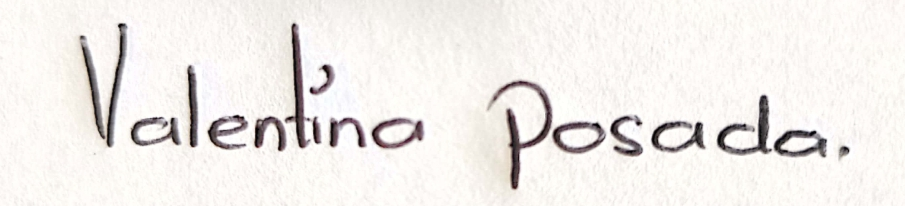 Valentina Posada.